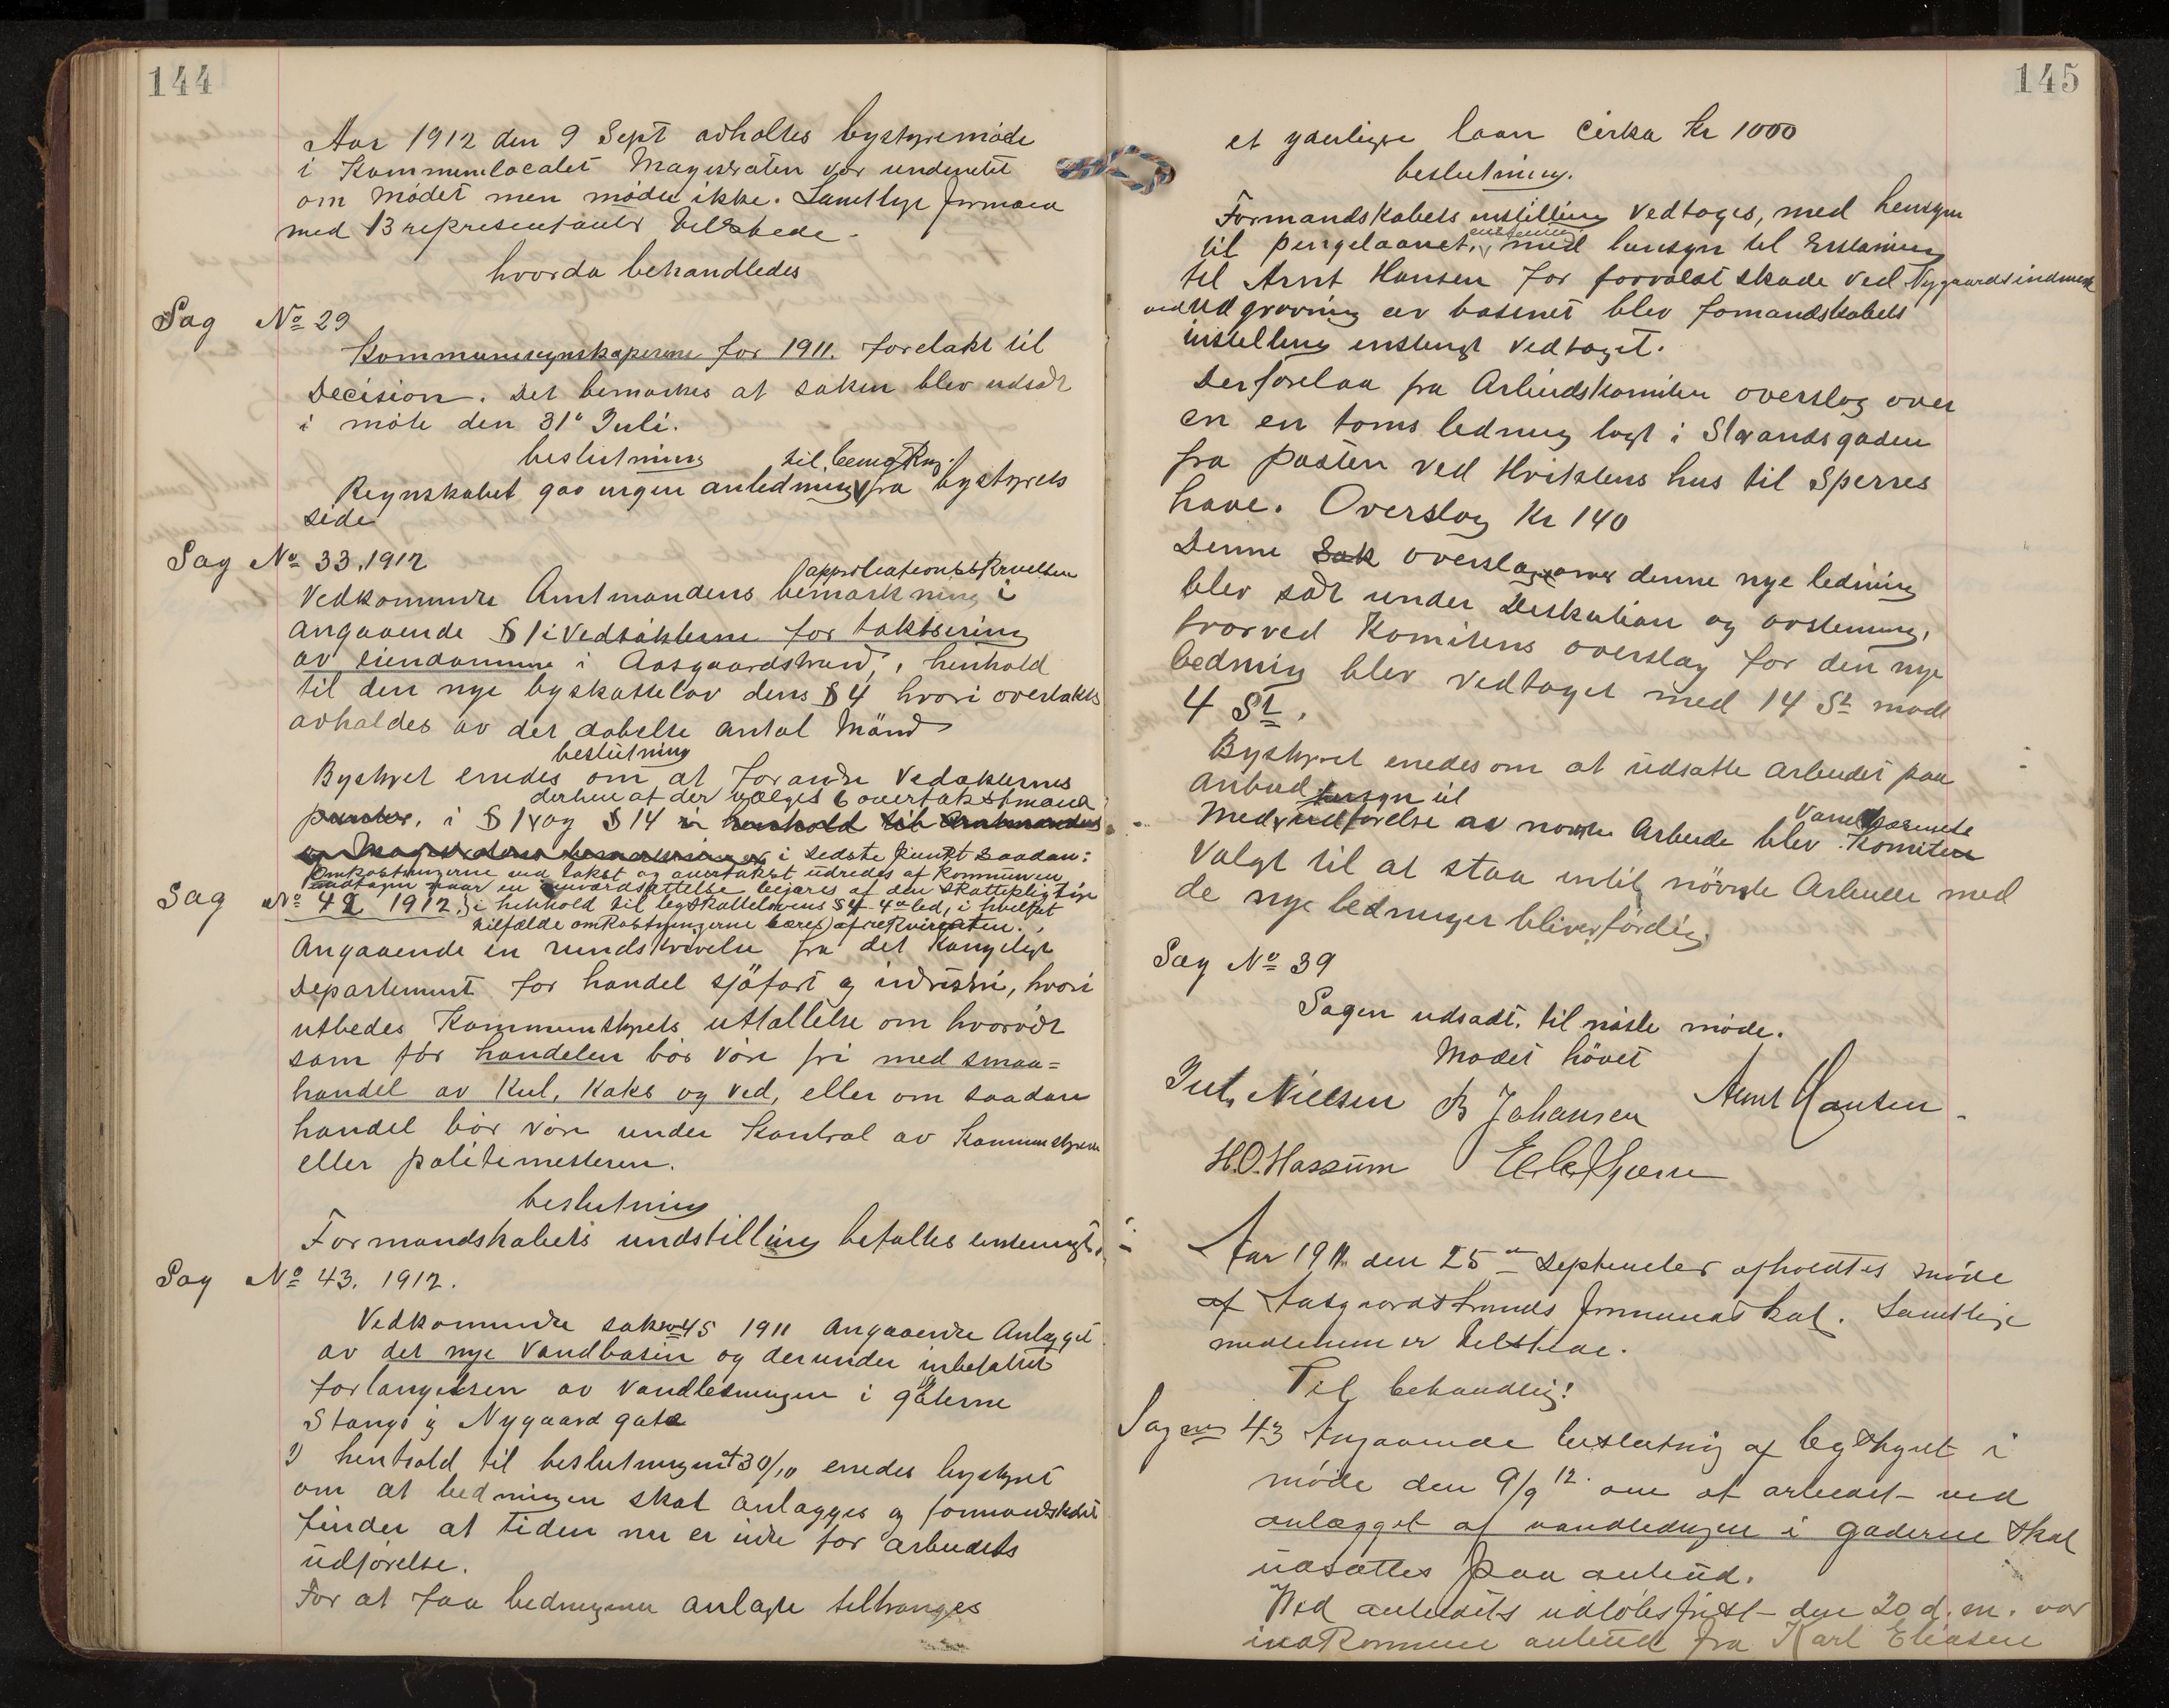 144
Aar 1912 den 9 Sept avholtes bystyremöde
i Kommunelocalet Magistraten var underrettet
om Mödet men mödte ikke. Samtlige formænd
med 13 representanter tilstede.
hvorda behandledes
Sag No 29
Kommuneregnskaperne for 1911. forelakt til
Decision. Det bemærkes at saken blev udsadt
i möte den 31te Juli.
beslutning
til bemærkng.
Regnskabet gav ingen anledning fra bystyrets
side
Sag No 33, 1912
approbationsskrivelsen
Vedkommende Amtmandens bemærkning i
angaaende § 1 i Vedtækterne for taksering
av eiendomme i Aasgaardstrand, i henhold
til den nye byskattelov dens § 4 hvori overtakst
avholdes av det dobelte antal Mænd
beslutning
Bystyret enedes om at forandre Vedtækternes
derhen at der vælges 6 overtakstmænd
punkter. i § 1 og § 14 i henhold til Amtmandens
i sidste punkt saadan:
Omkostningerne ved takst og overtakst udredes af Kommunen
undtagen naar en nyværdsættelse begjæres af den skattepligtige
Sag No 42 1912. i henhold til byskattelovens § 4 4de led, i hvilket
tilfælde omkostningerne bæres af rekvirenten.
Angaaende en rundskrivelse fra det Kongelige
Departement for handel sjöfart og industri, hvori
utbedes Kommunestyrets uttallelse om hvorvidt
som för handelen bör være fri med smaa=
handel av Kul, Koks og Ved, eller om saadan
handel bör være under Kontrol av Kommunestyren
eller politimesteren.
beslutning
Formandskabets indstilling befaltes enstemigt.
Sag No 43. 1912.
Vedkommende sak no 45 1911 Angaaende Anlægget
av det nye Vandbasin og derunder inbefattet
forlængelsen av Vandledningen i gaterne
Stangs og Nygaard gate
I henhold til beslutningen at 30/10 enedes bystyret
om at ledningen skal anlægges og formandskabet
finder at tiden nu er inde for arbeidets
udförelse.
For at faa ledningerne anlagte tiltranges
145
et yderligere laan cirka Kr 1000
beslutning.
Formandskabets instilling Vedtages, med hensyn
til pengelaanet, enstemig med hensyn til Erstatning
til Arnt Hansen for forvoldt skade ved Nygaardsindmark
ved Udgravning av basinet blev formandskabets
instilling enstemigt Vedtaget.
Der forelaa fra Arbeidskomiteen overslag over
en en toms ledning lagt i Strandgaden
fra posten ved Hvitstens hus til Sperres
have. Overslag Kr 140
Denne Sak overslag over denne nye ledning
blev sadt under Diskution og avstemning,
hvorved Komitens overslag for den nye
ledning blev vedtaget med 14 St. mod
4 St.
Bystyret enedes om at udsætte arbeidet paa
Anbud.
hensyn til
Vandvæsenets
Med udförelse av nævnte Arbeide blev Komiteen
Valgt til at staa intil nævnte Arbeide med
de nye ledninger bliver færdig.
Sag No 39
Sagen udsadt. til næste möde.
Mödet hævet
Juls Nielsen B Johansen Arnt Hansen.
H.O. Hassum
Aar 1911 den 25de September afholdtes möde
af Aasgaardstrands formandskab. Samtlige
medlemmer tilstede.
Til behandling!
Sag no 43 Angaaende beslutning af bystyret i
möde den 9/9 12. om at arbeidet ved
anlægget af vandledngen i gaderne skal
udsættes paa anbud.
Ved anbudets udlöbsfrist den 20 d.m. var
indkommne anbud fra Karl Eliasen